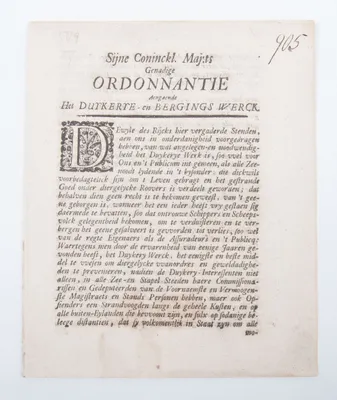 905
Sijne Coninckl. Maj:ts
Genadige
ORDONNANTIE
Aengaende
Het DUYKERYE- en BERGINGS WERCK.
DEwyle des Rijcks hier vergaderde Stenden,
aen ons in onderdanigheid voorgedragen
hebben, van wat angelegen- en nootwendig-
heid het Duykerye Werk is, soo wel voor
Ons en 't Publicum int gemeen, als alle Zee-
vaert lydende in 't bysonder, die dickwils
voorbedagtelick sijn om 't Leven gebragt en het gestrande
Goed onder diergelycke Roovers is verdeelt geworden; dat
behalven dien geen recht is te bekomen geweest, van 't gee-
ne geborgen is, wanneer het een ieder heeft vry gestaen sig
daermede te bevatten, soo dat ontrouwe Schippers en Scheeps-
volck gelegentheid bekomen, om te verduysteren en te ver-
bergen het geene gesalveert is geworden tot verlies, soo wel
van de regte Eigenaers als de Assuradeurs en 't Publicq:
Waertegens men door de ervarenheid van eenige Jaaren ge-
vonden heeft, het Duykery Werck, het eenigste en beste mid-
del te weesen om dergelycke wanordres en gewelddadighe-
den te prevenieren, nadien de Duykery-Interessenten niet
alleen, in alle Zee- en Stapel Steeden haere Commissena-
rissen en Gedeputeerden van de Voornaemste en Vermogen-
ste Magistraets en Stands Personen hebben, maer ook Op-
sienders en Strandvoogden langs de geheele Kusten, en op
alle buiten-Eylanden die bewoont zijn, en sulx op sodanige be-
leege distantien, dat sy volkomentlik in Staat zyn om alle